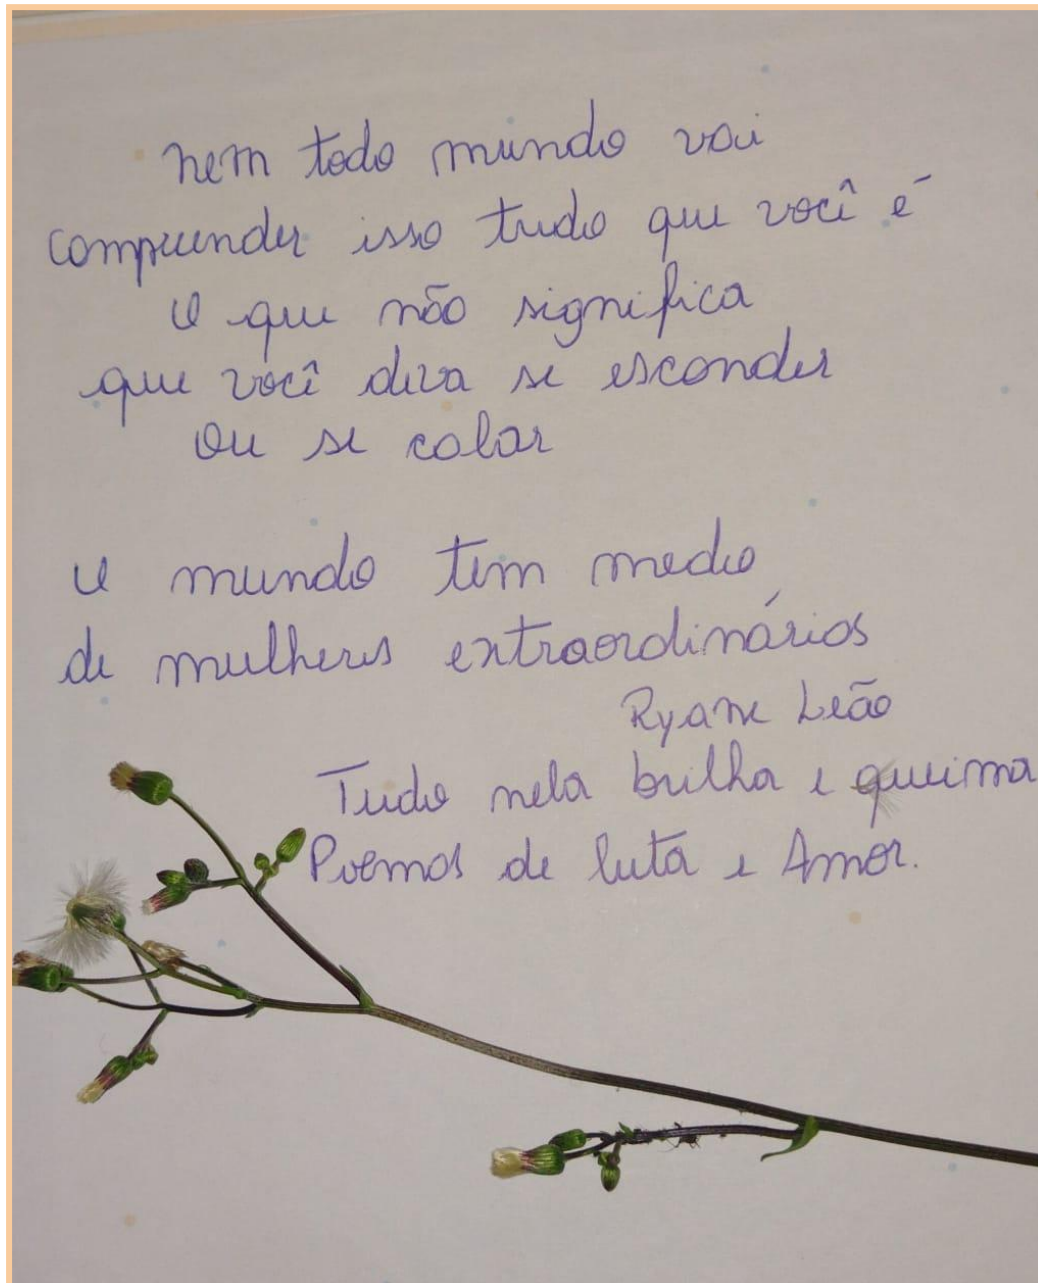 Nem todo mundo vai
compreender isso tudo que você é
O que não significa
que você deva se esconder
Ou se calar
O mundo tem medo
de mulheres extraordinárias
Ryane Leão
Tudo nela brilha e queima
Poemas de luta e Amor.